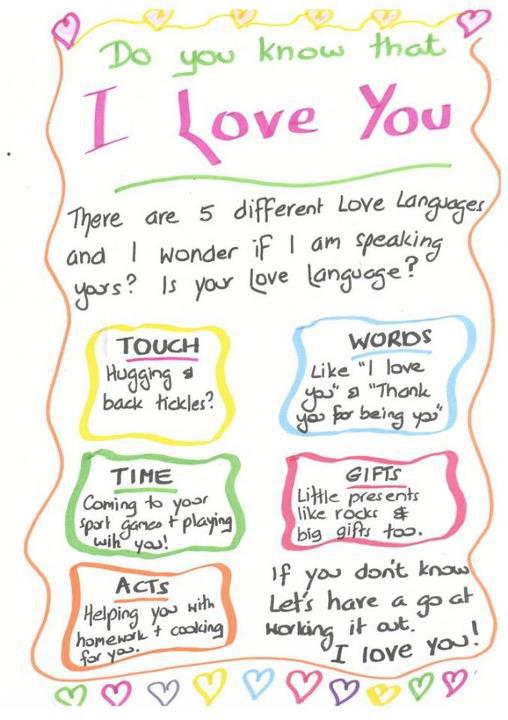 Do you know that
I Love You
There are 5 different Love Languages
and I wonder if I am speaking
yours? Is your Love Language?
TOUCH
Hugging &
back tickles?
WORDS
Like "I love
you" & "Thank
you for being you"
TIME
Coming to your
sport games + playing
with you!
GIFTS
Little presents
like rocks &
big gifts too.
ACTS
Helping you with
homework + cooking
for you.
If you don't know
Let's have a go at
working it out.
I love you!